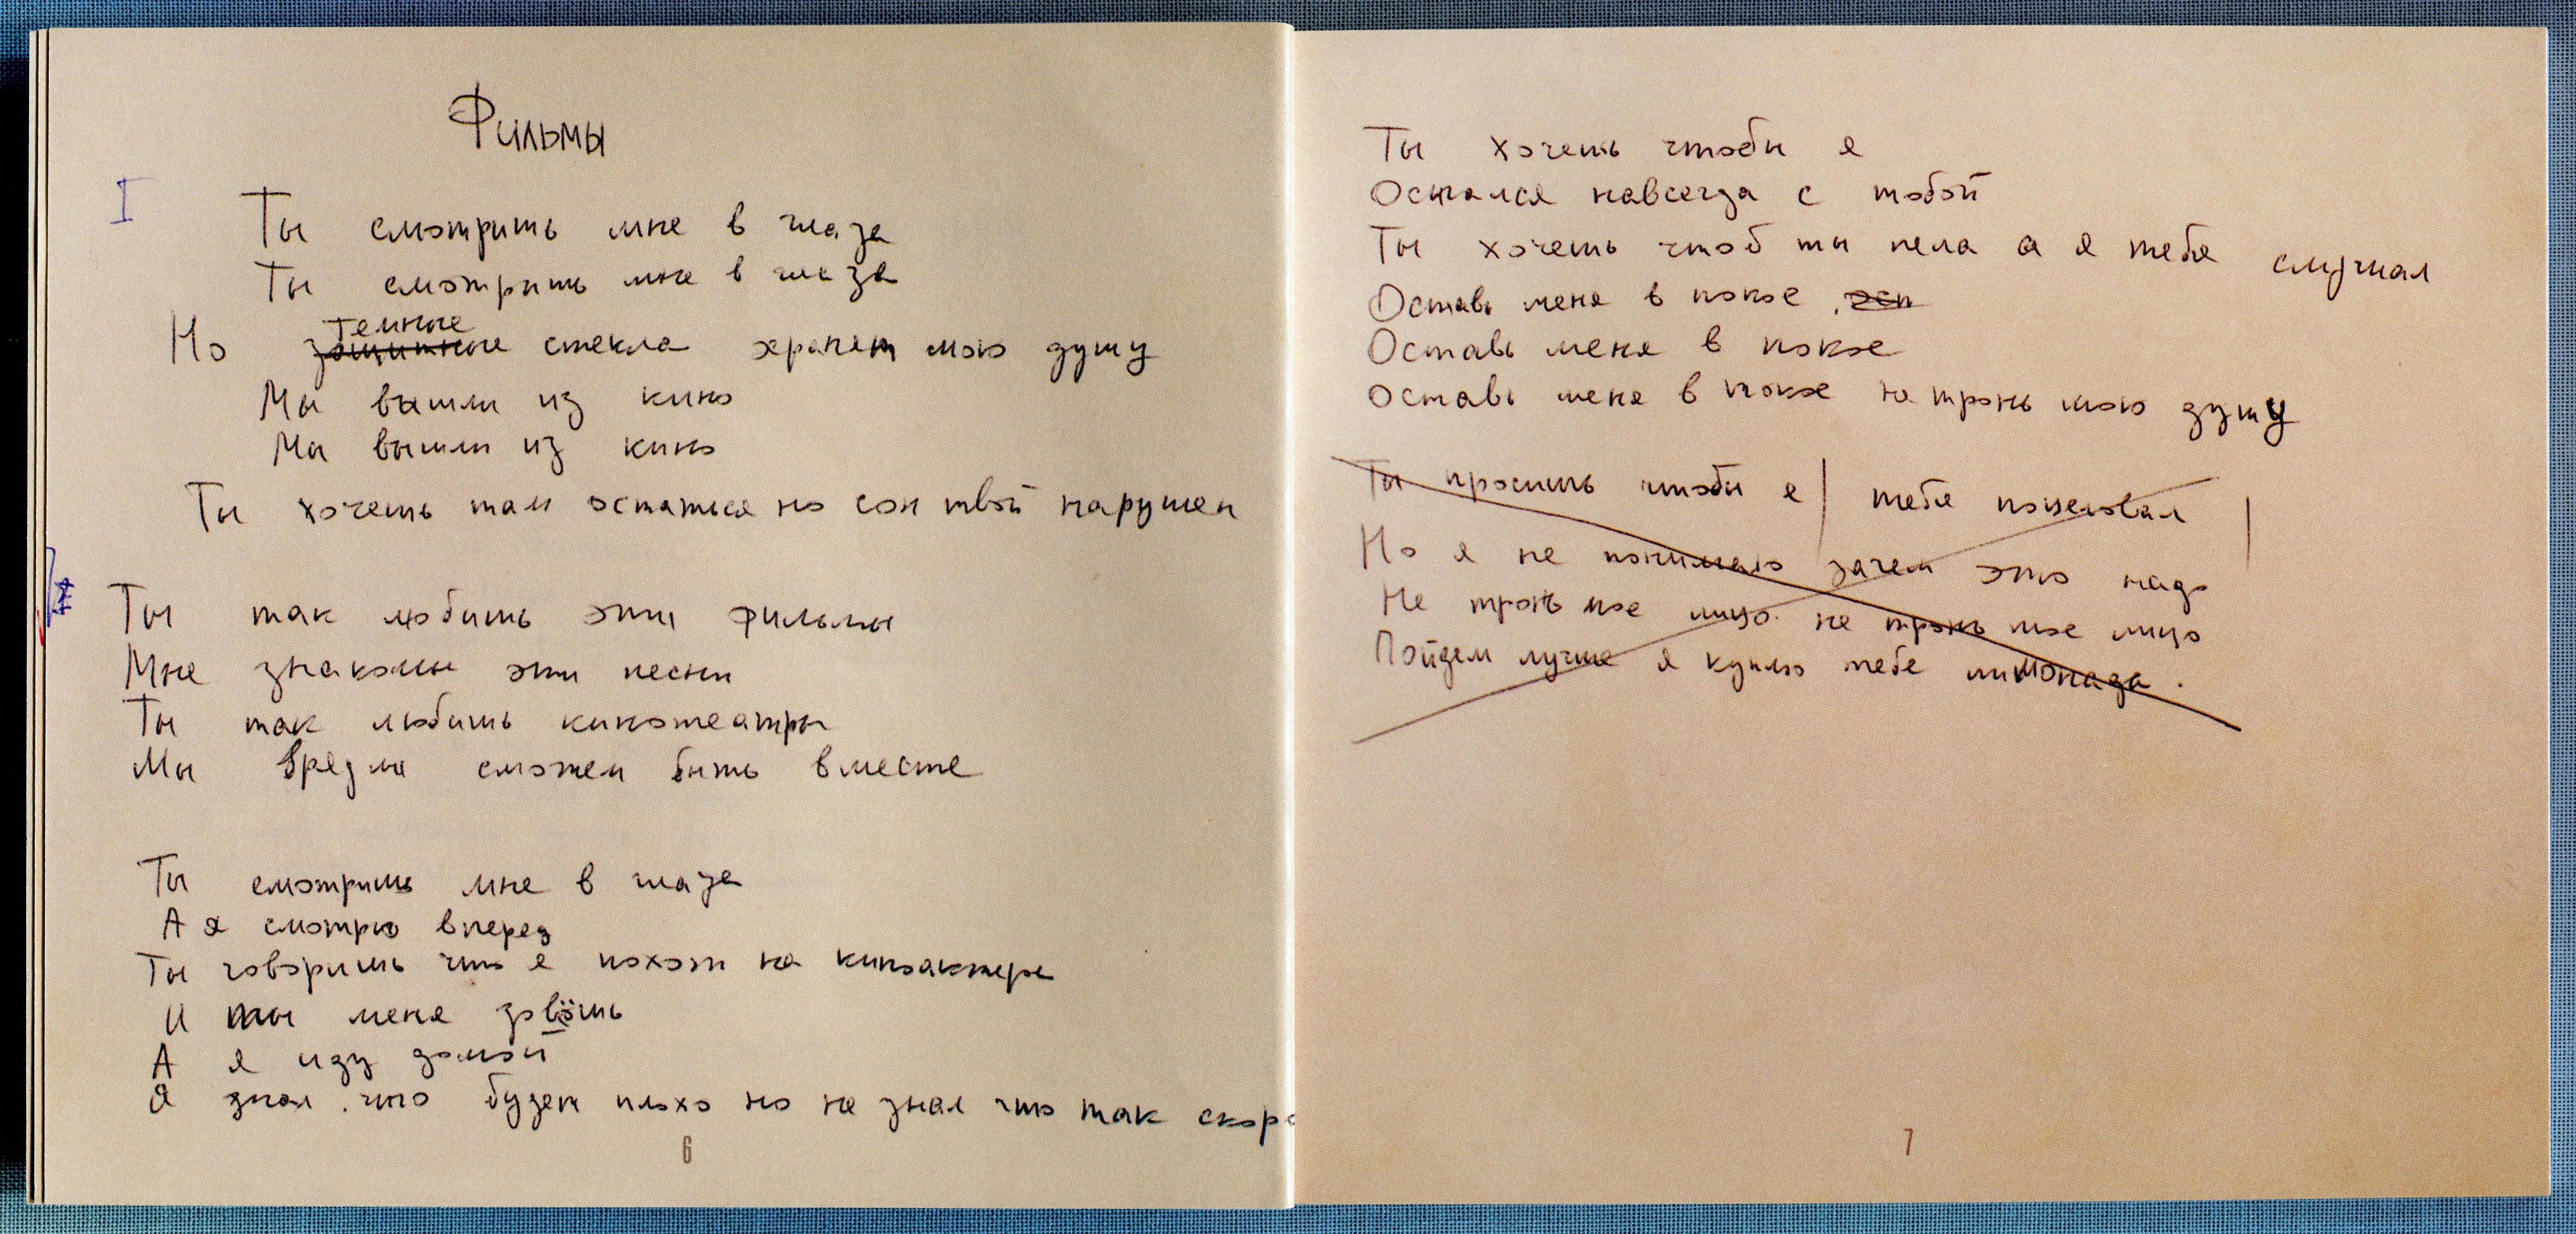 Фильмы
I
Ты смотришь мне в глаза
Ты смотришь мне в глаза
темные
Но защитные стекла хранят мою душу
Мы вышли из кино
Мы вышли из кино
Ты хочешь там остаться но сон твой нарушен
Ты так любишь эти фильмы
Мне знакомы эти песни
Ты так любишь кинотеатры
Мы вредли сможем быть вместе
Ты смотришь мне в глаза
А я смотрю вперед
Ты говоришь что я похож на киноактера
И ты меня зовёшь
А я иду домой
Я знал что будет плохо но не знал что так скоро
6
Ты хочешь чтобы я
Остался навсегда с тобой
Ты хочешь чтоб ты пела а я тебя слушал
Оставь меня в покое
Оставь меня в покое
Оставь меня в покое не тронь мою душу
Ты просишь чтобы я тебя поцеловал
Но я не понимаю зачем это надо
Не тронь мое лицо не тронь мое лицо
Пойдем лучше я куплю тебе лимонада.
7